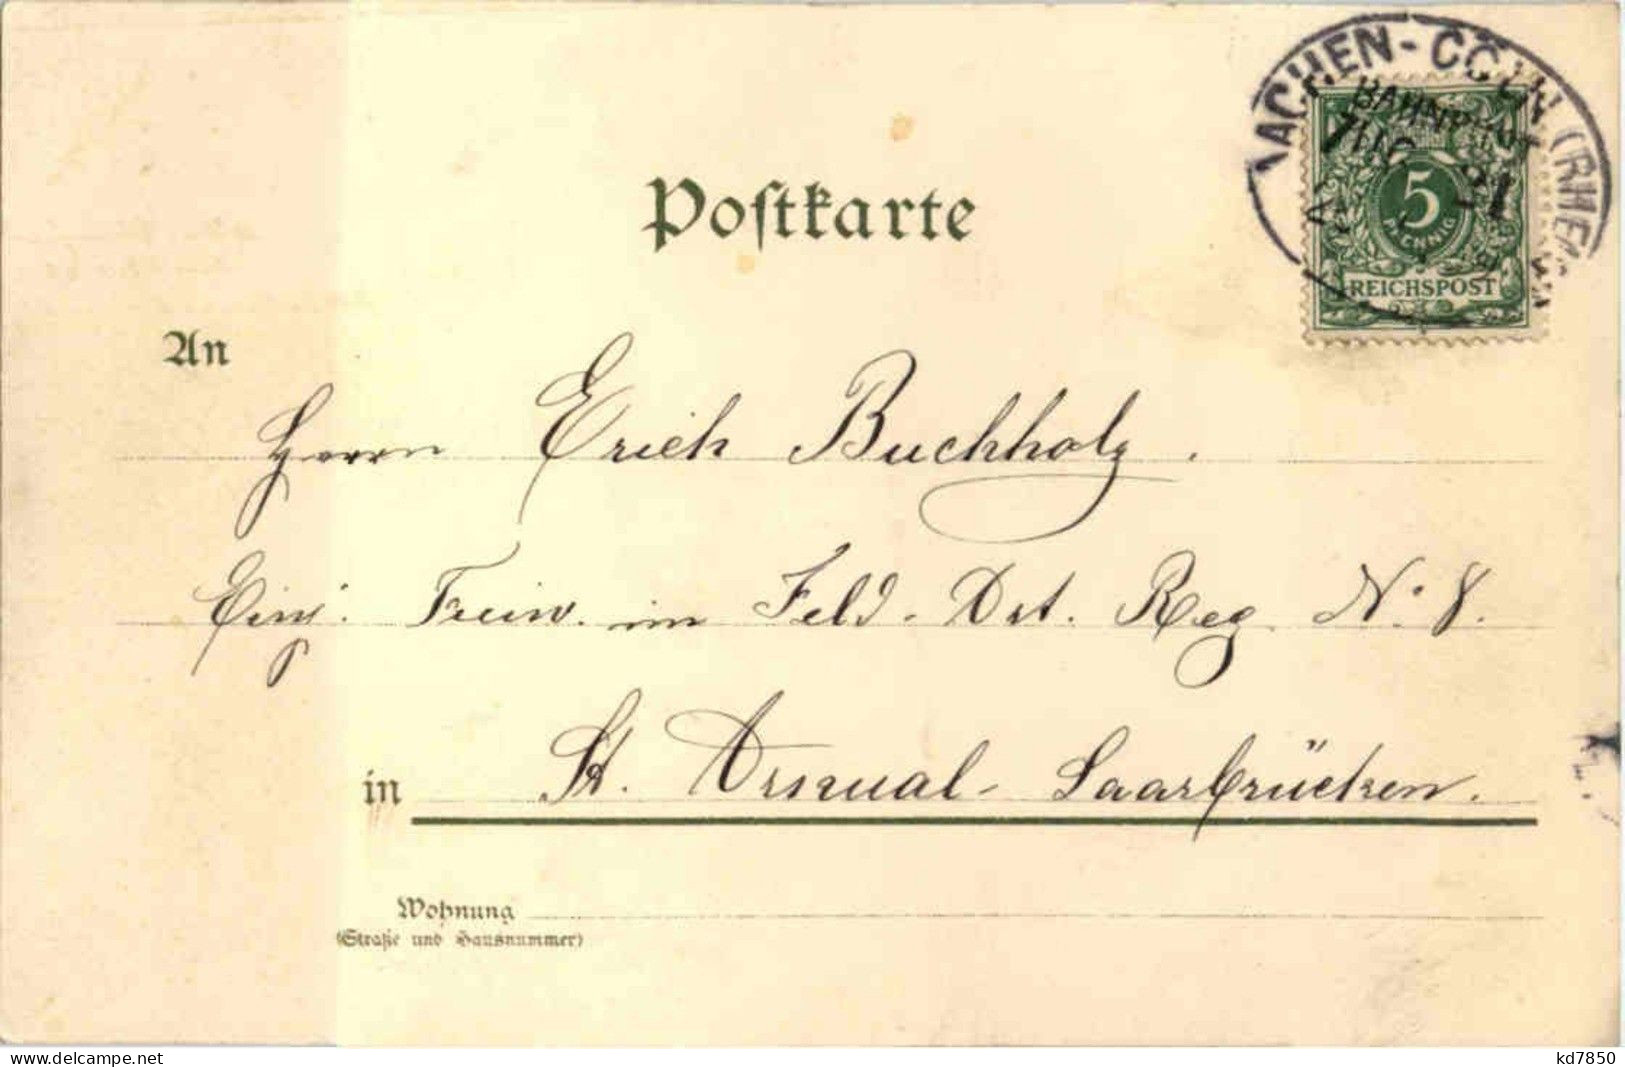 AACHEN - CÖLN (RHEIN
BAHNPOST
ZUG 21
5
PFENNIG
REICHSPOST
Postkarte
An
Herrn Erich Buchholz.
Einj. Freiw. im Feld. Art. Reg. N. 8.
in St. Arnual - Saarbrücken.
Wohnung
(Straße und Hausnummer)
www.delcampe.net
kd7850